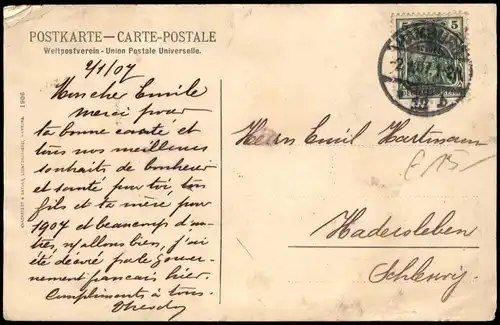 POSTKARTE — CARTE-POSTALE
Weltpostverein - Union Postale Universelle.
2/1/07
Mon cher Emile
merci pour
ta bonne carte et
tous nos meilleurs
souhaits de bonheur
et santé pour toi, ton
fils et ta mère pour
1907 et beaucoup d'au-
tres, n/ allons bien, j'ai
été décoré par le gouver-
nement français hier.
Compliments à tous.
5
5
Herrn Emil Hartmann
Hadersleben
Schleswig.
1906